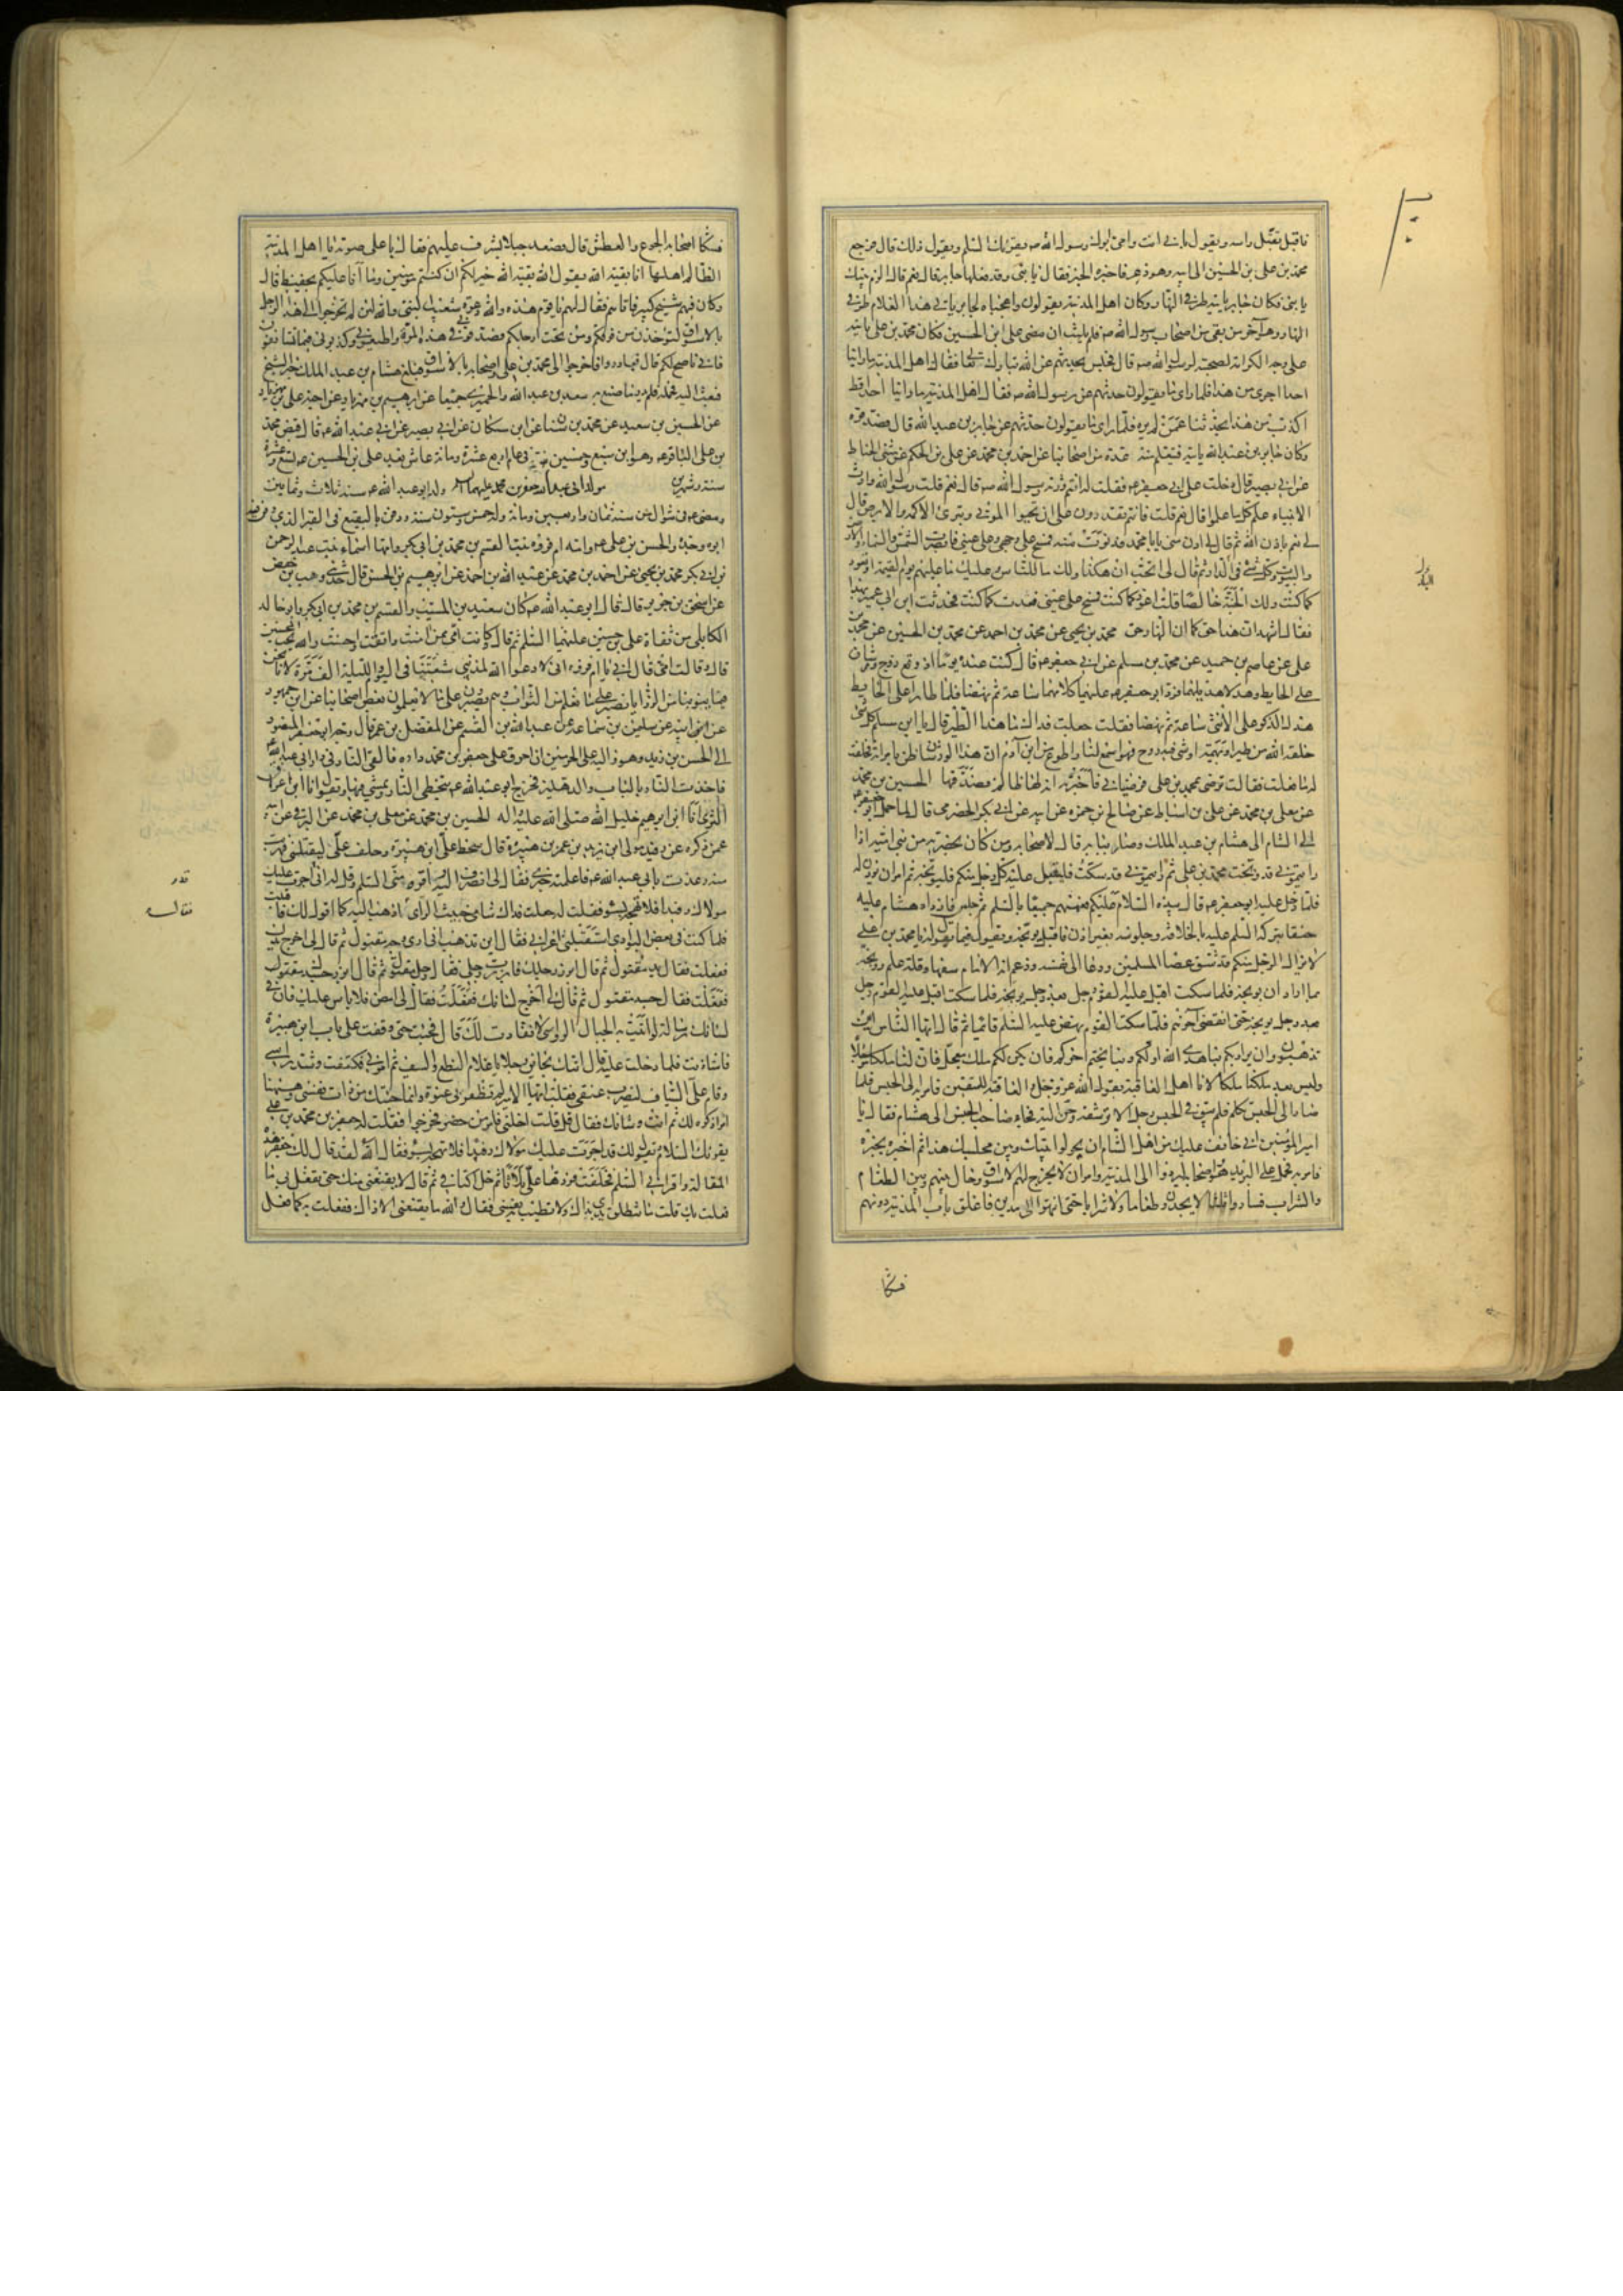 فاقبل يقبل راسه ويقول بابي انت وامي ابوك رسول الله ص يقرئك السلم ويقول ذلك قال فرجع
محمد بن علي بن الحسين الى ابيه وهو ذعر فاخبره الخبر فقال يا بني وقد فعلها جابر قال نعم قال الزم بيتك
يا بني فكان جابر ياتيه طرفي النهار وكان اهل المدينة يقولون واعجباه لجابر ياتي هذا الغلام طرفي
النهار وهو آخر من بقي من اصحاب رسول الله ص فلم يلبث ان مضى علي ابن الحسين فكان محمد بن علي ياتيه
على وجه الكرامة لصحبته لرسول الله ص قال فجلس يحدثهم عن الله تبارك وتعالى فقال اهل المدينة ما راينا
احدا اجرى من هذا فلما راى ما يقولون حدثهم عن رسول الله ص فقال اهل المدينة ما راينا احدا قط
اكذب من هذا يحدثنا عمن لم يره فلما راى ما يقولون حدثهم عن جابر بن عبد الله قال فصدقوه
وكان جابر بن عبد الله ياتيه فيتعلم منه عدة من اصحابنا عن احمد بن محمد عن علي بن الحكم عن مثنى الحناط
عن ابي بصير قال دخلت على ابي جعفر ع فقلت له انتم ورثة رسول الله ص قال نعم قلت رسول الله وارث
الانبياء علم كل ما علموا قال نعم قلت فانتم تقدرون على ان تحيوا الموتى وتبرئ الاكمه والابرص قال
لي نعم باذن الله ثم قال لي ادن مني يا با محمد فدنوت منه فمسح على وجهي وعلى عيني فابصرت الشمس والسماء والارض
والبيوت وكل شيء في الدار ثم قال لي اتحب ان هكذا ولك ما للناس وعليك ما عليهم يوم القيمة او تعود
كما كنت ولك الجنة خالصا قلت اعود كما كنت فمسح على عيني فعدت كما كنت فحدثت ابن ابي عمير بهذا
فقال اشهد ان هذا حق كما ان النهار حق محمد بن يحيى عن محمد بن احمد عن محمد بن الحسين عن محمد بن
علي عن عاصم بن حميد عن محمد بن مسلم عن ابي جعفر ع قال كنت عنده يوما اذ وقع زوج ورشان
على الحايط وهدلا هديلهما فرد ابو جعفر ع عليهما كلامهما ساعة ثم نهضا فلما طارا على الحايط
هدل الذكر على الانثى ساعة ثم نهضا فقلت جعلت فداك ما هذا الطير قال يا ابن مسلم كل شيء
خلقه الله من طير او بهيمة او شيء فيه روح فهو اسمع لنا واطوع من ابن آدم ان هذا الورشان ظن بامراته فحلفت
له ما فعلت فقالت ترضى بمحمد بن علي فرضيا بي فاخبرته انه لها ظالم فصدقها الحسين بن محمد
عن معلى بن محمد عن علي بن اسباط عن صالح بن حمزة عن ابيه عن ابي بكر الحضرمي قال لما حمل ابو جعفر ع
الى الشام الى هشام بن عبد الملك وصار ببابه قال لاصحابه ومن كان بحضرته من بني امية اذا
رايتموني قد وبخت محمد بن علي ثم رايتموني قد سكت فليقبل عليه كل رجل منكم فليوبخه ثم امر ان يؤذن له
فلما دخل عليه ابو جعفر ع قال بيده السلام عليكم فعمهم جميعا بالسلم ثم جلس فازداد هشام عليه
حنقا بتركه السلم عليه بالخلافة وجلوسه بغير اذن فاقبل يوبخه ويقول فيما يقول له يا محمد بن علي
لا يزال الرجل منكم قد شق عصا المسلمين ودعا الى نفسه وزعم انه الامام سفها وقلة علم ووبخه
بما اراد ان يوبخه فلما سكت اقبل عليه القوم رجل بعد رجل يوبخه فلما سكت اقبل عليه القوم رجل
بعد رجل يوبخه حتى انقضى آخرهم فلما سكت القوم نهض عليه السلم قائما ثم قال ايها الناس اين
تذهبون واين يراد بكم بنا هدى الله اولكم وبنا يختم آخركم فان يكن لكم ملك معجل فان لنا ملكا مؤجلا
وليس بعد ملكنا ملك لانا اهل العاقبة يقول الله عز وجل والعاقبة للمتقين فامر به الى الحبس فلما
صار الى الحبس تكلم فلم يبق في الحبس رجل الا ترشفه وحن اليه فجاء صاحب الحبس الى هشام فقال له يا
امير المؤمنين اني خائف عليك من اهل الشام ان يحولوا بينك وبين مجلسك هذا ثم اخبره بخبره
فامر به فحمل على البريد هو واصحابه ليردوا الى المدينة وامر ان لا يخرج لهم الاسواق وحال بينهم وبين الطعام
والشراب فساروا ثلثا لا يجدون طعاما ولا شرابا حتى انتهوا الى مدين فاغلق باب المدينة دونهم
فشكا
فشكا اصحابه الجوع والعطش قال فصعد جبلا يشرف عليهم فقال باعلى صوته يا اهل المدينة
الظالم اهلها انا بقية الله يقول الله بقية الله خير لكم ان كنتم مؤمنين وما انا عليكم بحفيظ قال
وكان فيهم شيخ كبير فاتاهم فقال لهم يا قوم هذه والله دعوة شعيب النبي والله لئن لم تخرجوا الى هذا الرجل
بالاسواق لتؤخذن من فوقكم ومن تحت ارجلكم فصدقوني في هذه المرة واطيعوني وكذبوني فيما تستانفون
فاني ناصح لكم قال فبادروا فاخرجوا الى محمد بن علي واصحابه بالاسواق فبلغ هشام بن عبد الملك خبر الشيخ
فبعث اليه فحمله فلم يدر ما صنع به سعد بن عبد الله والحميري جميعا عن ابرهيم بن مهزيار عن اخيه علي بن مهزيار
عن الحسين بن سعيد عن محمد بن سنان عن ابن مسكان عن ابي بصير عن ابي عبد الله ع قال قبض محمد
بن علي الباقر ع وهو ابن سبع وخمسين سنة في عام اربع عشرة ومائة عاش بعد علي بن الحسين ع تسع عشرة
سنة وشهرين مولد ابي عبد الله جعفر بن محمد عليهما السلام ولد ابو عبد الله ع سنة ثلاث وثمانين
ومضى ع في شوال من سنة ثمان واربعين ومائة وله خمس وستون سنة ودفن بالبقيع في القبر الذي دفن فيه
ابوه وجده والحسن بن علي ع وامه ام فروة بنت القسم بن محمد بن ابي بكر وامها اسماء بنت عبد الرحمن
بن ابي بكر محمد بن يحيى عن احمد بن محمد عن عبد الله بن احمد عن ابرهيم بن الحسن قال حدثني وهب بن حفص
عن اسحق بن جرير قال قال ابو عبد الله ع كان سعيد بن المسيب والقسم بن محمد بن ابي بكر وابو خالد
الكابلي من ثقاة علي بن حسين عليهما السلم ثم قال وكانت امي ممن امنت واتقت واحسنت والله يحب المحسنين
قال وقالت امي قال ابي يا ام فروة اني لادعو الله لمذنبي شيعتنا في اليوم والليلة الف مرة لانا نحن
فيما ينوبنا من الرزايا نصبر على ما نعلم من الثواب وهم يصبرون على ما لا يعلمون بعض اصحابنا عن ابن جمهور
عن ابيه عن سليمن بن سماعة عن عبد الله بن القسم عن المفضل بن عمر قال وجه ابو جعفر المنصور
الى الحسن بن زيد وهو واليه على الحرمين ان احرق على جعفر بن محمد داره فالقى النار في دار ابي عبد الله ع
فاخذت النار بالباب والدهليز فخرج ابو عبد الله ع يتخطى النار ويمشي فيها ويقول انا ابن اعراق
الثرى انا ابن ابرهيم خليل الله صلى الله عليه واله الحسين بن محمد عن معلى بن محمد عن البرقي عن ابيه
عمن ذكره عن رفيد مولى ابن يزيد بن عمر بن هبيرة قال سخط علي ابن هبيرة وحلف علي ليقتلني فهربت
منه وعذت بابي عبد الله ع فاعلمته خبري فقال لي انصرف اليه واقره مني السلم وقل له اني اجرت عليك
مولاك رفيدا فلا تهجه بسوء فقلت له جعلت فداك شامي خبيث الراي اذهب اليه كما اقول لك فاقبلت
فلما كنت في بعض البوادي استقبلني اعرابي فقال اين تذهب اني ارى وجه مقتول ثم قال لي اخرج يدك
ففعلت فقال يد مقتول ثم قال ابرز رجلك فابرزت رجلي فقال رجل مقتول ثم قال ابرز جسدك
ففعلت فقال جسد مقتول ثم قال لي اخرج لسانك ففعلت فقال لي امض فلا باس عليك فان في
لسانك رسالة لو اتيت بها الجبال الرواسي لانقادت لك قال فجئت حتى وقفت على باب ابن هبيرة
فاستاذنت فلما دخلت عليه قال اتتك بحائن رجلاه يا غلام النطع والسيف ثم امر بي فكتفت وشد راسي
وقام علي السياف ليضرب عنقي فقلت ايها الامير لم تظفر بي عنوة وانما جئتك من ذات نفسي وههنا
امر اذكره لك ثم انت وشانك فقال قل قلت اخلني فامر من حضر فخرجوا فقلت له جعفر بن محمد بن علي
يقرئك السلام ويقول لك قد اجرت عليك مولاك رفيدا فلا تهجه بسوء فقال الله لقد قال لك جعفر هذه
المقالة واقراني السلم فحلفت فردها علي ثلاثا ثم حل كتافي ثم قال لا يقنعني منك حتى تفعل بي ما
فعلت بك قلت ما تنطلق يدي بذاك ولا تطيب به نفسي فقال والله ما يقنعني الا ذاك ففعلت به كما فعل
فقال له